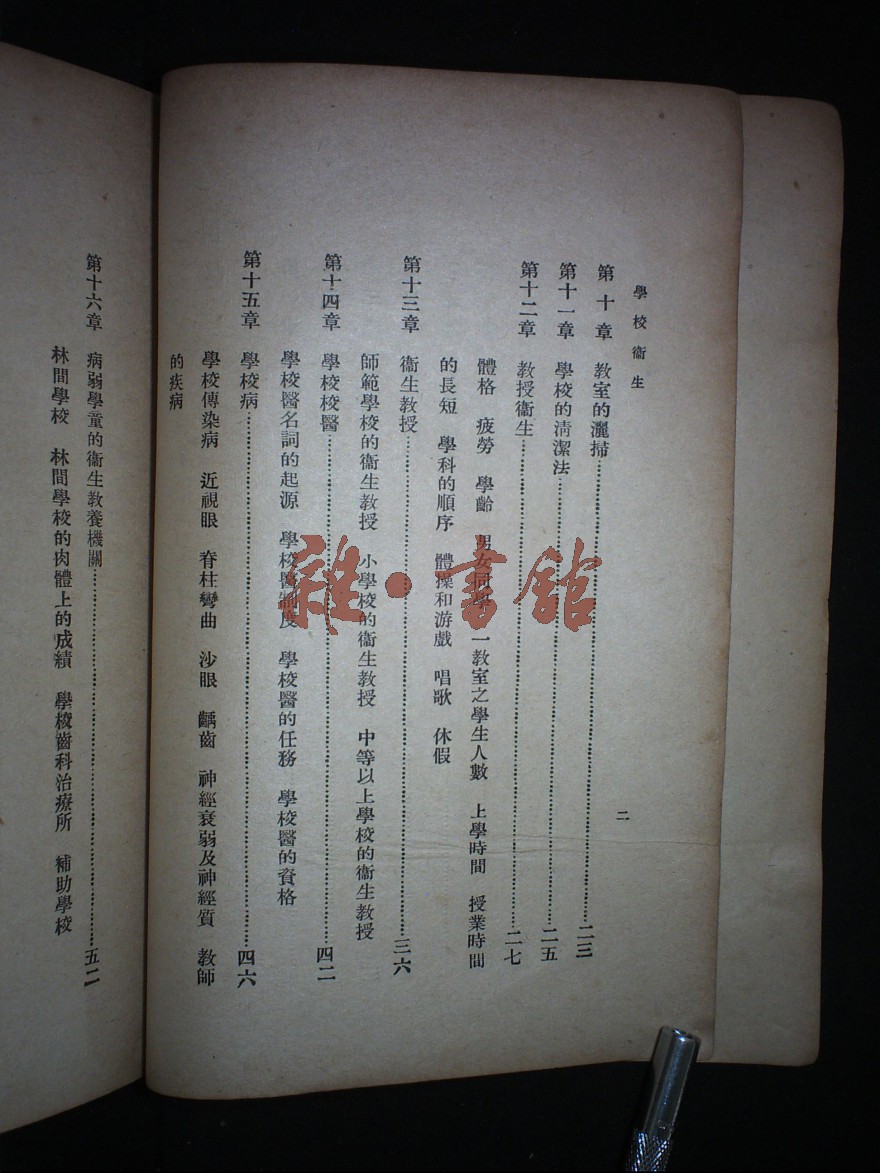 學校衞生
二
第十章 教室的灑掃…………二三
第十一章 學校的清潔法…………二五
第十二章 教授衞生…………二七
體格 疲勞 學齡 男女同學 一教室之學生人數 上學時間 授業時間
的長短 學科的順序 體操和游戲 唱歌 休假
第十三章 衞生教授…………三六
師範學校的衞生教授 小學校的衞生教授 中等以上學校的衞生教授
第十四章 學校校醫…………四二
學校醫名詞的起源 學校醫制度 學校醫的任務 學校醫的資格
第十五章 學校病…………四六
學校傳染病 近視眼 脊柱彎曲 沙眼 齲齒 神經衰弱及神經質 教師
的疾病
第十六章 病弱學童的衞生教養機關…………五二
林間學校 林間學校的肉體上的成績 學校齒科治療所 補助學校
雜·書館